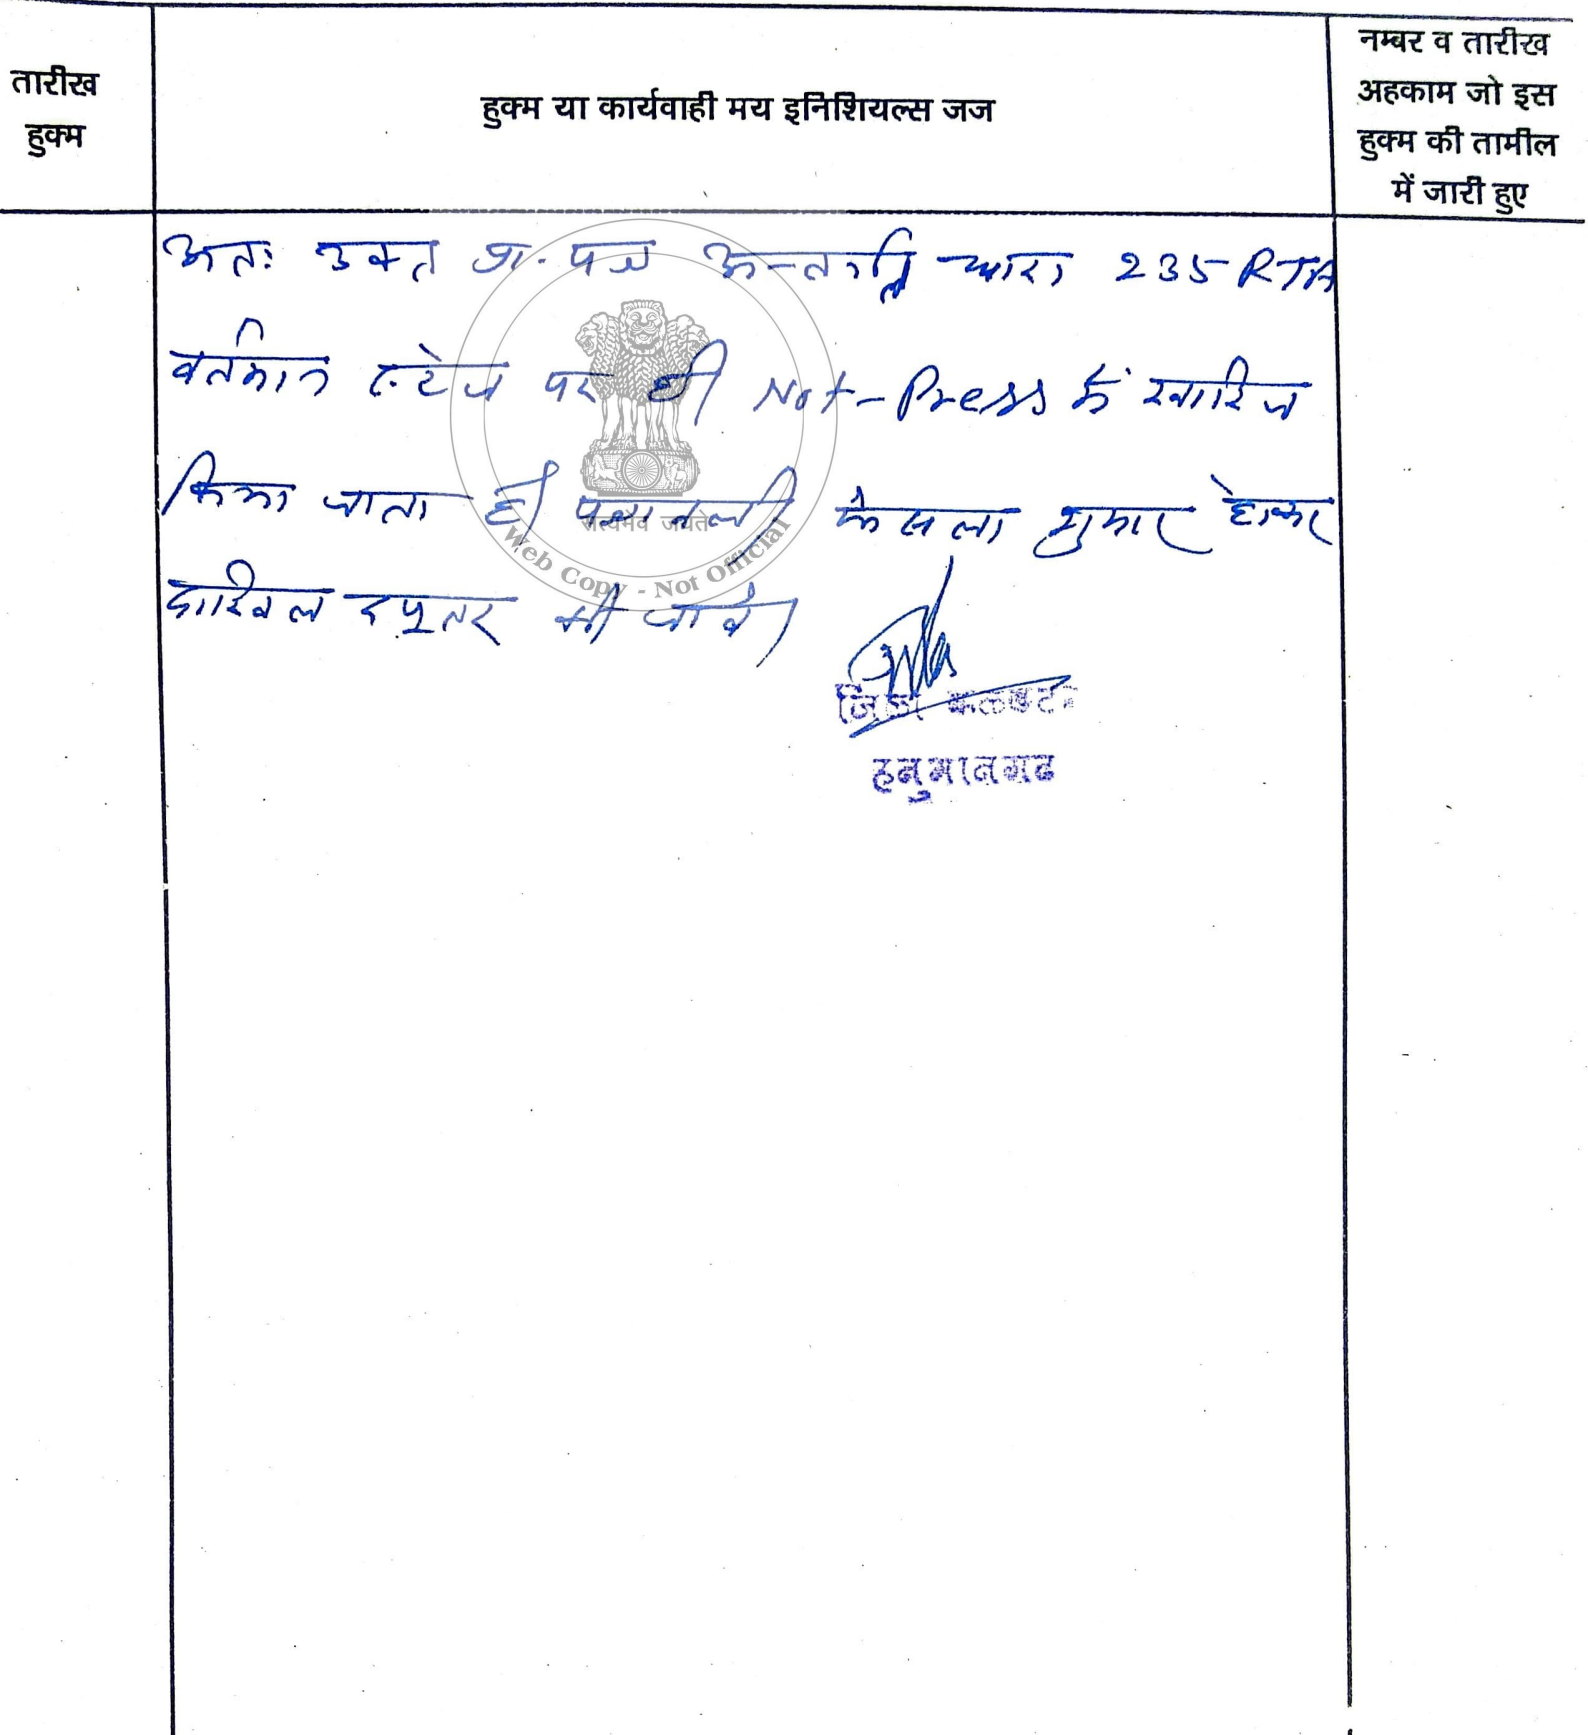 तारीख
हुक्म
हुक्म या कार्यवाही मय इनिशियल्स जज
नम्बर व तारीख
अहकाम जो इस
हुक्म की तामील
में जारी हुए
अतः उक्त प्रा. पत्र अन्तर्गत धारा 235 RTA
वर्तमान स्टेज पर ही Not-Press में खारिज
किया जाता है। पत्रावली फैसला शुमार होकर
दाखिल दफ्तर की जावे।
सत्यमेव जयते
Web Copy - Not Official
जिला कलक्टर
हनुमानगढ